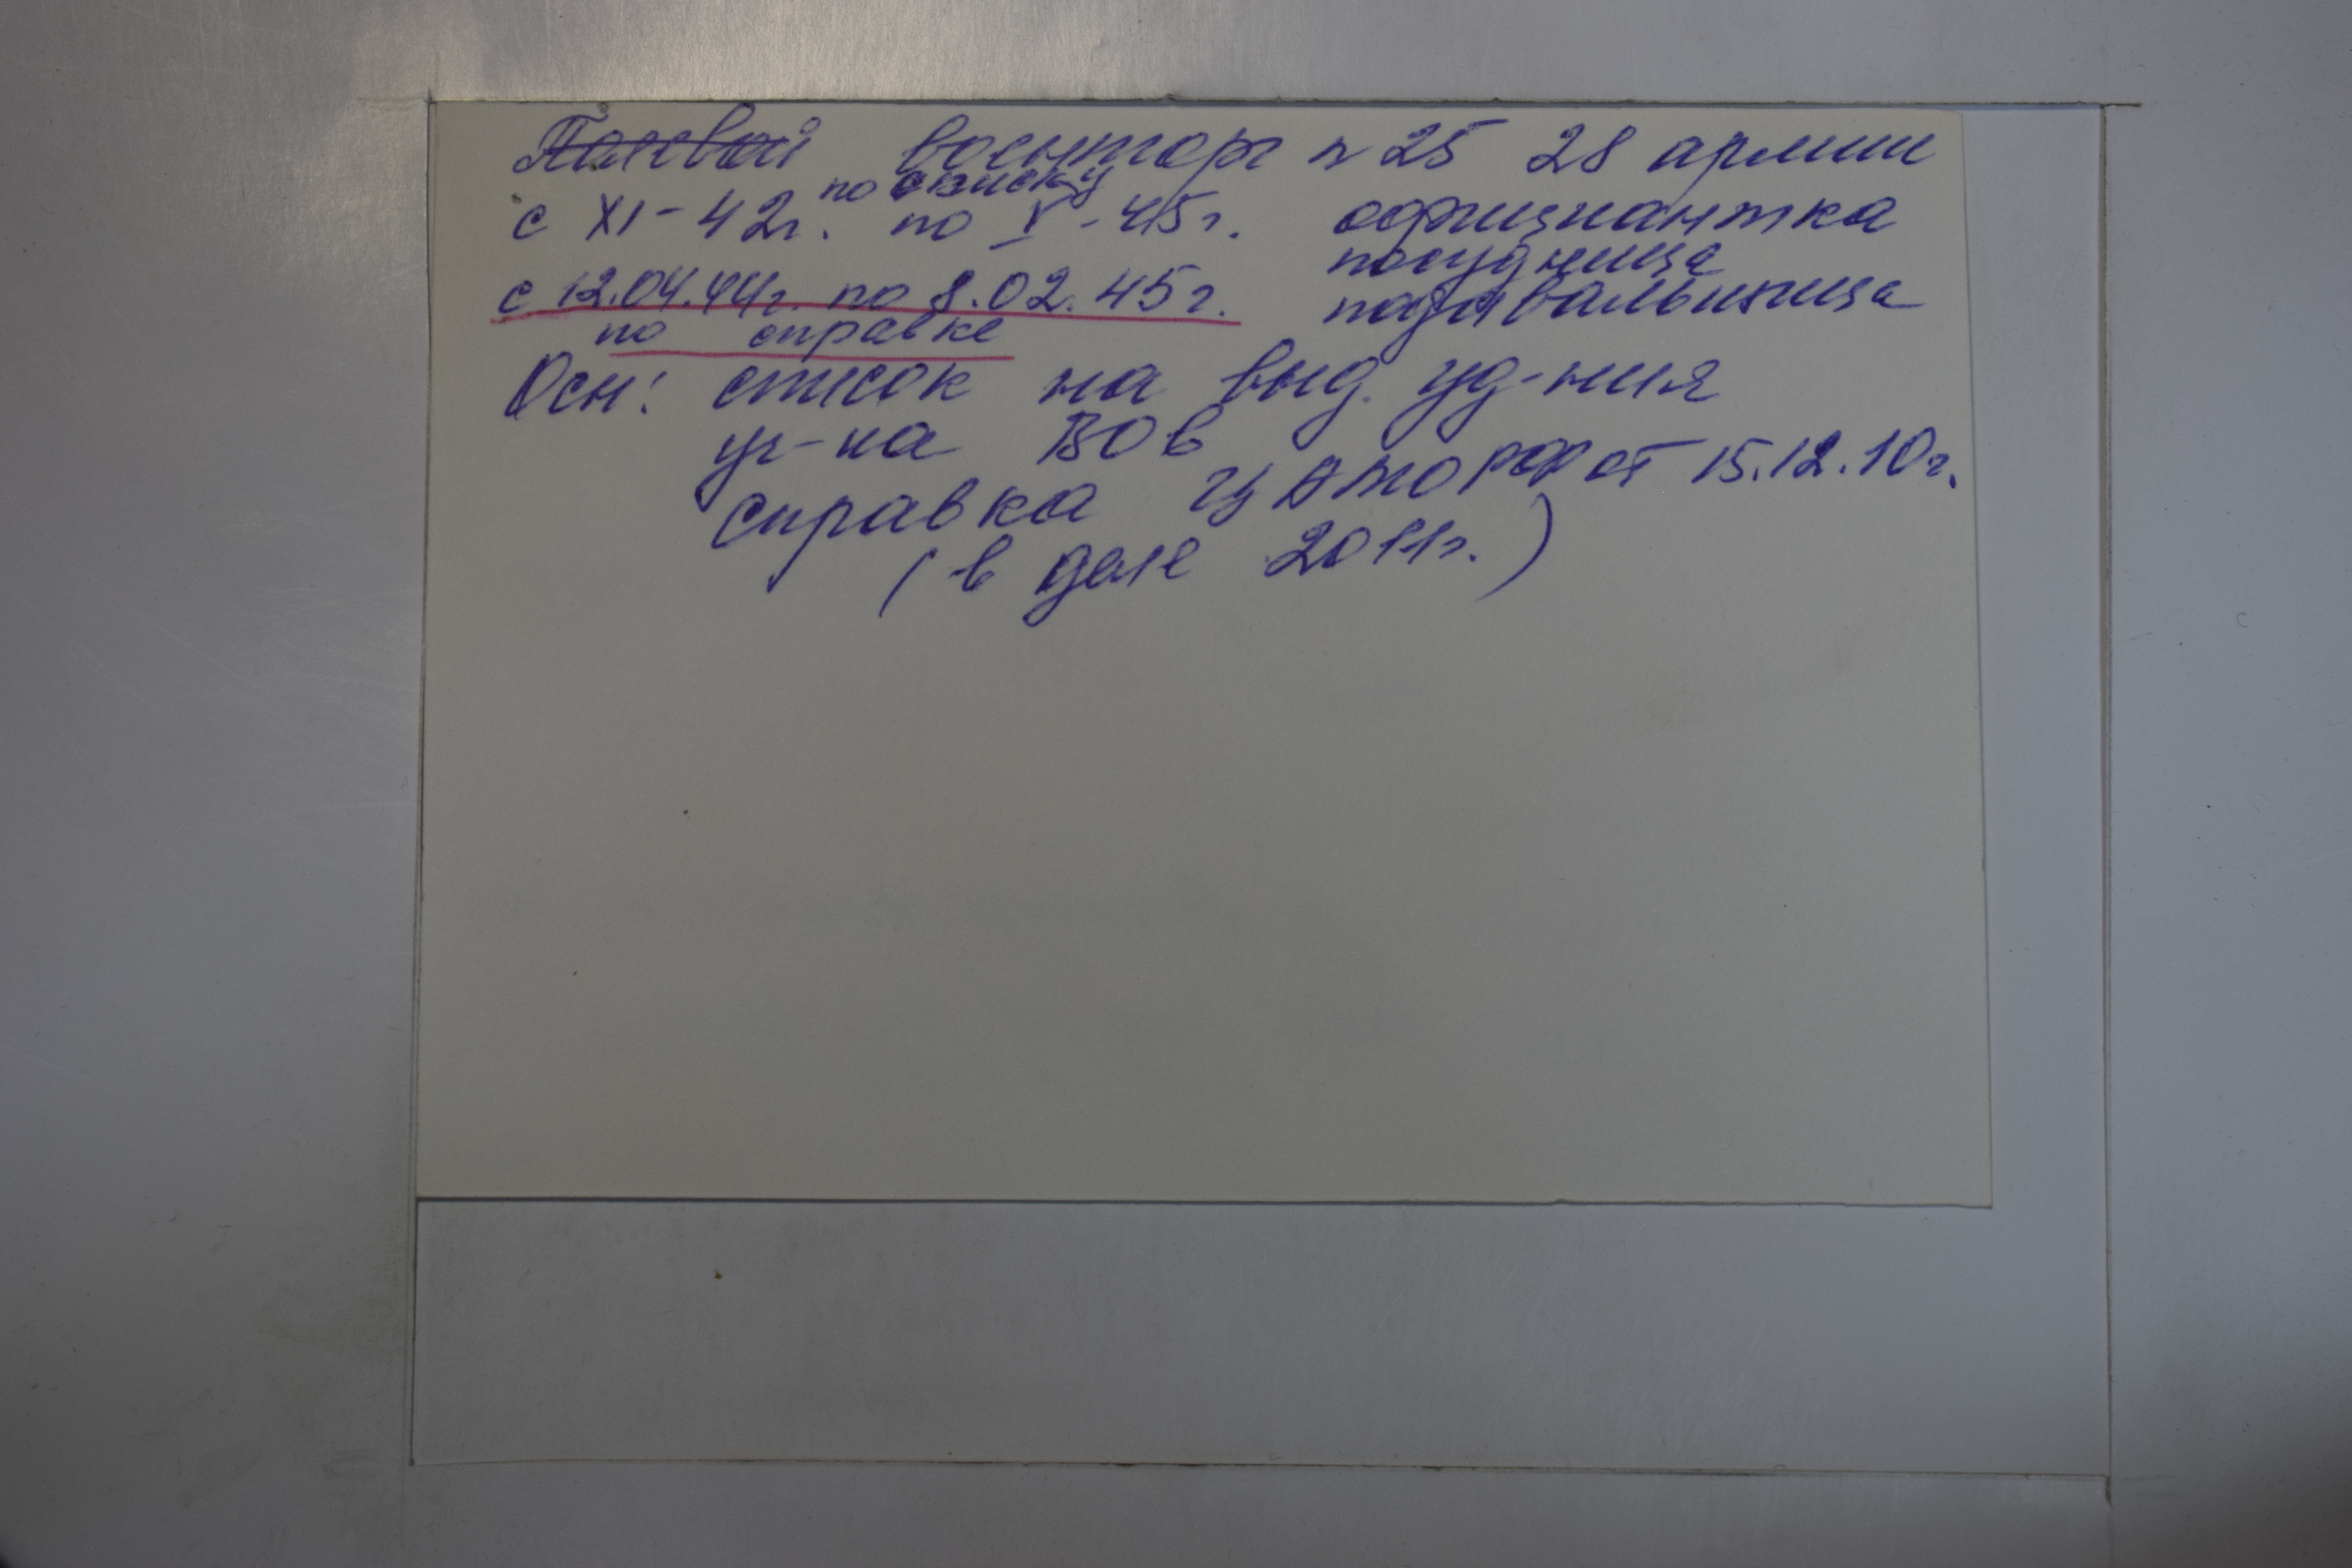 Полевой военторг n 25 28 армии
по списку
с XI-42г. по V-45г. официантка
посудница
с 12.04.44г. по 8.02.45г. подавальщица
по справке
Осн: список на выд. уд-ния
уч-ка ВОв
справка ЦАМО РФ от 15.12.10г.
(в деле 2011г.)